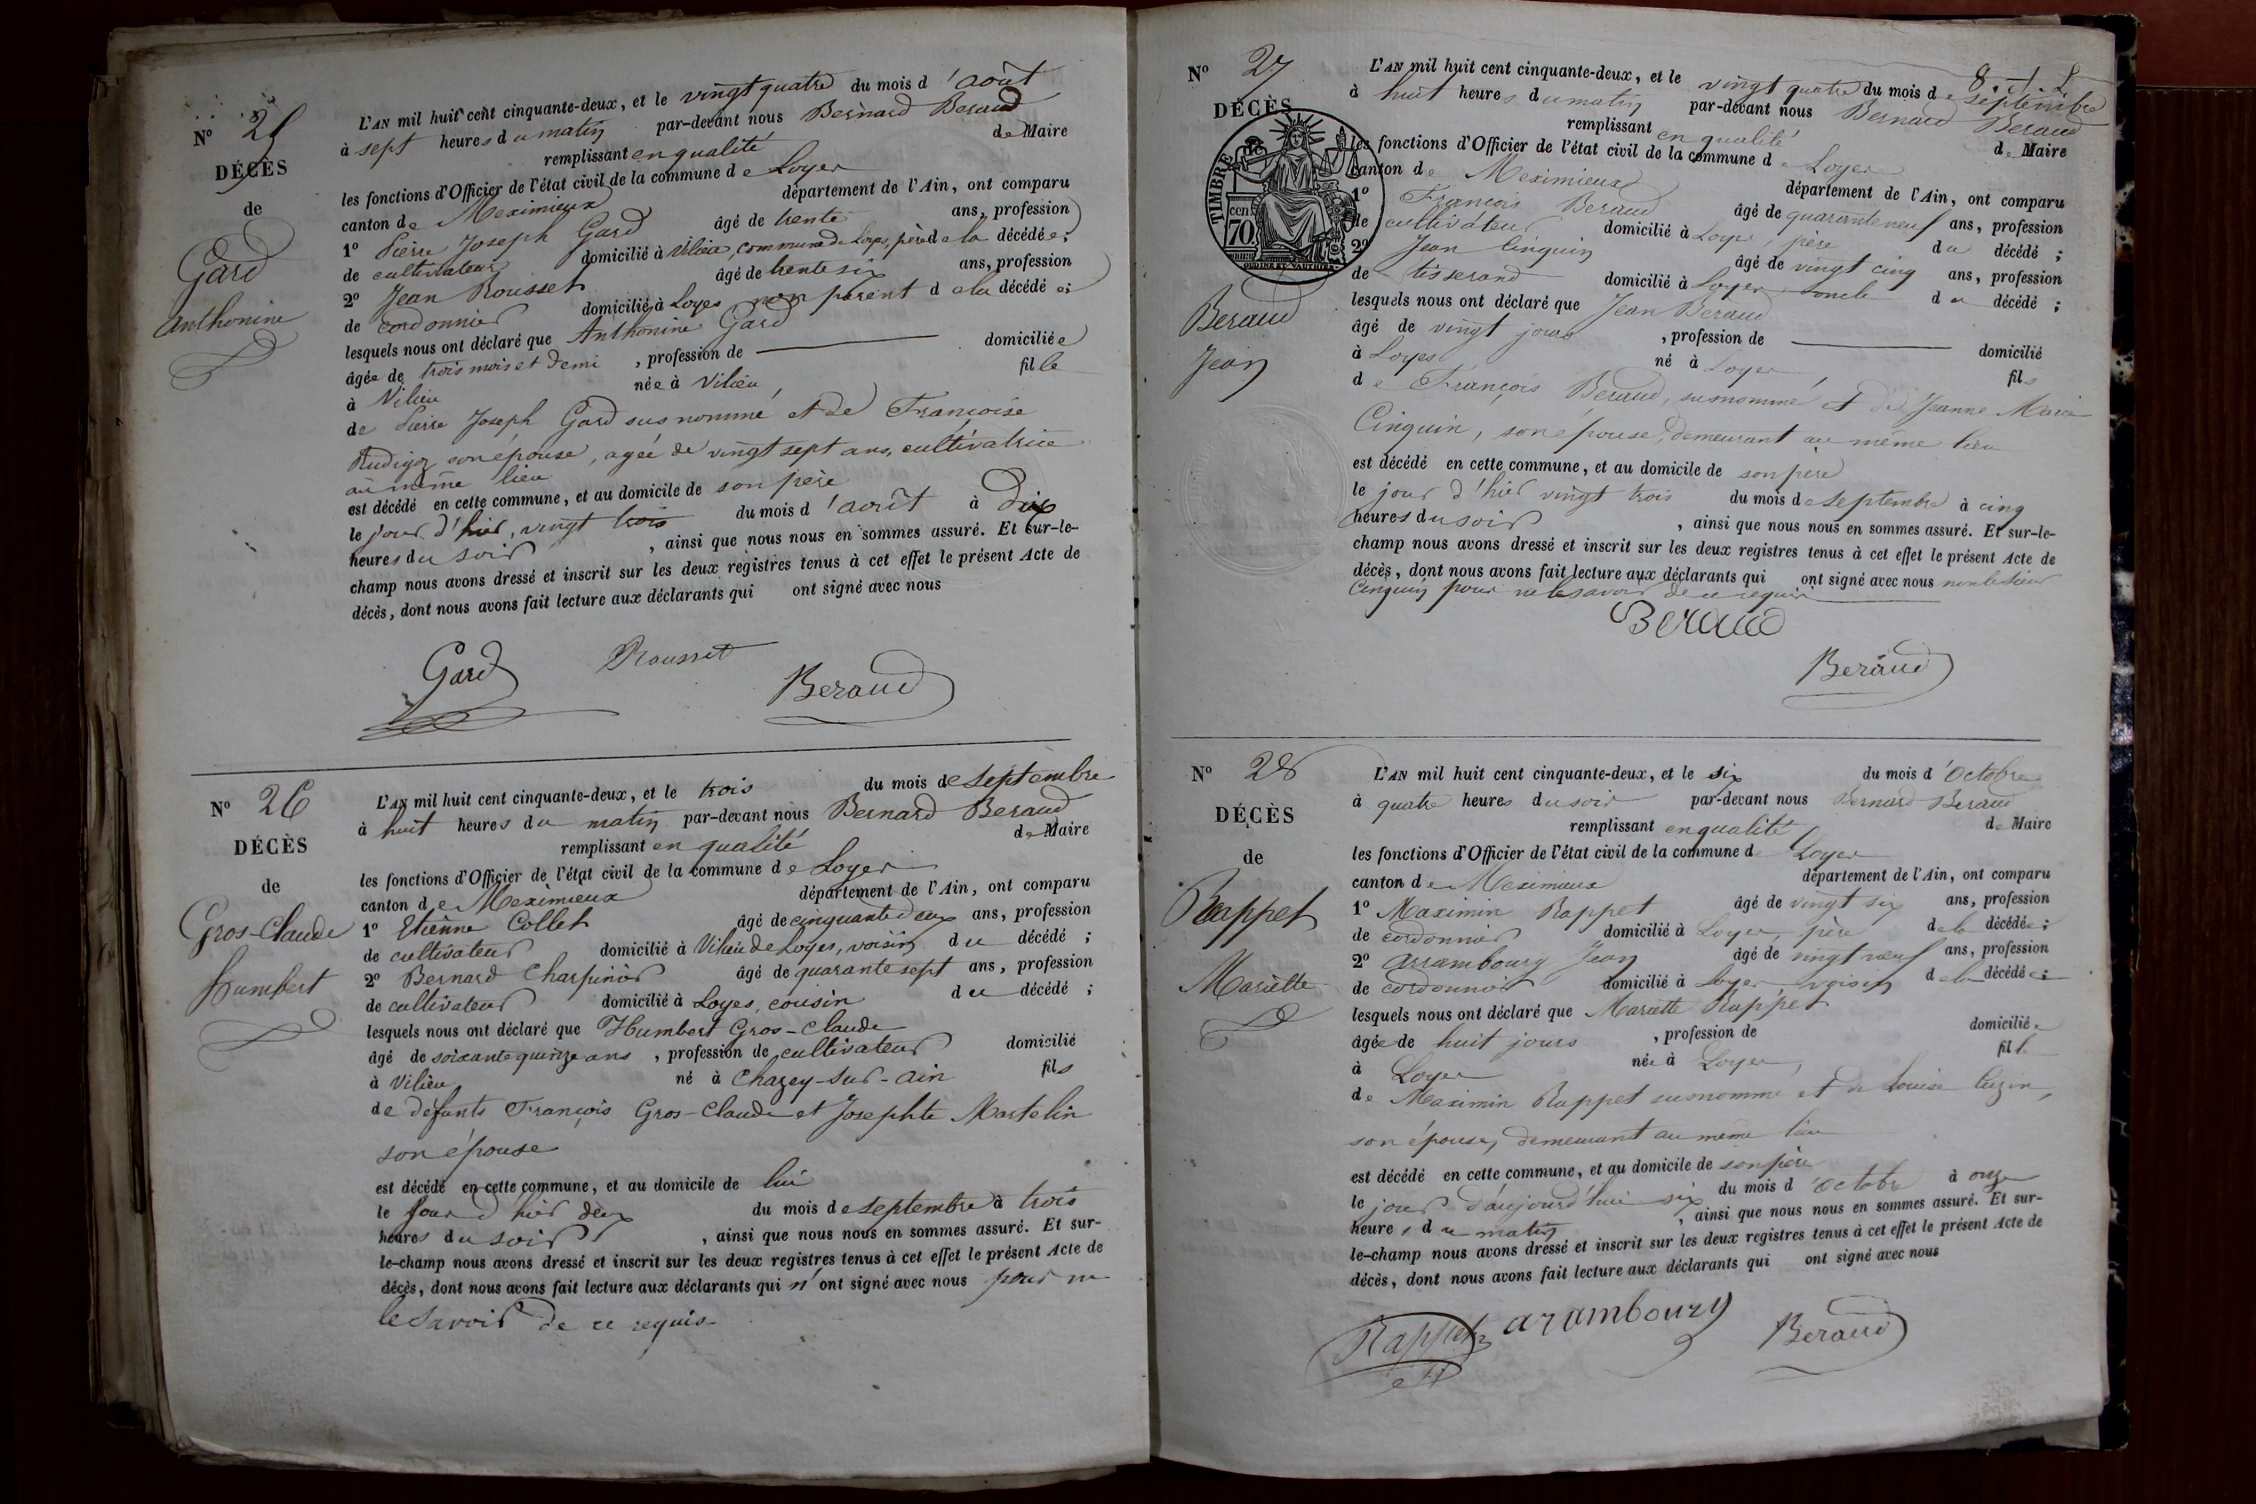 N° 25
DÉCÈS
de
Gard
Anthonine
L'AN mil huit cent cinquante-deux, et le vingt quatre du mois d'août
à sept heures du matin par-devant nous Bernard Beraud
remplissant en qualité de Maire
les fonctions d'Officier de l'état civil de la commune de Loyes
canton de Meximieux département de l'Ain, ont comparu
1° Pierre Joseph Gard âgé de trente ans, profession
de cultivateur domicilié à Vilieu, commune de Loyes, père de la décédée;
2° Jean Rousset âgé de trente six ans, profession
de cordonnier domicilié à Loyes non parent de la décédée;
lesquels nous ont déclaré que Anthonine Gard
âgée de trois mois et demi , profession de domiciliée
à Vilieu née à Vilieu, fille
de Pierre Joseph Gard susnommé et de Françoise
Rudigoz son épouse, agée de vingt sept ans, cultivatrice
au même lieu
est décédé en cette commune, et au domicile de son père
le jour d'hier, vingt trois du mois d'août à dix
heures du soir , ainsi que nous nous en sommes assuré. Et sur-le-
champ nous avons dressé et inscrit sur les deux registres tenus à cet effet le présent Acte de
décès, dont nous avons fait lecture aux déclarants qui ont signé avec nous
Gard Rousset Beraud
N° 26
DÉCÈS
de
Gros-Claude
humbert
L'AN mil huit cent cinquante-deux, et le trois du mois de septembre
à huit heures du matin par-devant nous Bernard Beraud
remplissant en qualité de Maire
les fonctions d'Officier de l'état civil de la commune de Loyes
canton de Meximieux département de l'Ain, ont comparu
1° Etienne Collet âgé de cinquante deux ans, profession
de cultivateur domicilié à Vilieu de Loyes, voisin du décédé ;
2° Bernard Charpinor âgé de quarante sept ans, profession
de cultivateur domicilié à Loyes, cousin du décédé ;
lesquels nous ont déclaré que Humbert Gros-Claude
âgé de soixante quinze ans , profession de cultivateur domicilié
à Vilieu né à Chazey-sur-ain fils
de défunts François Gros-Claude et Josephte Martelin
son épouse
est décédé en cette commune, et au domicile de lui
le jour d'hier deux du mois de septembre à trois
heures du soir , ainsi que nous nous en sommes assuré. Et sur-
le-champ nous avons dressé et inscrit sur les deux registres tenus à cet effet le présent Acte de
décès, dont nous avons fait lecture aux déclarants qui n'ont signé avec nous pour ne
le savoir de ce requis
N° 27
DÉCÈS
TIMBRE
70 cen
Beraud
Jean
L'AN mil huit cent cinquante-deux, et le vingt quatre du mois de septembre
à huit heures du matin par-devant nous Bernard Beraud
remplissant en qualité de Maire
les fonctions d'Officier de l'état civil de la commune de Loyes
canton de Meximieux département de l'Ain, ont comparu
1° François Beraud âgé de quarante neuf ans, profession
de cultivateur domicilié à Loyes père du décédé ;
2° Jean Cinquin âgé de vingt cinq ans, profession
de tisserand domicilié à Loyes oncle du décédé ;
lesquels nous ont déclaré que Jean Beraud
âgé de vingt jours , profession de domicilié
à Loyes né à Loyes, fils
de François Beraud, susnommé et de Jeanne Marie
Cinquin, son épouse, demeurant au même lieu
est décédé en cette commune, et au domicile de son père
le jour d'hier vingt trois du mois de septembre à cinq
heures du soir , ainsi que nous nous en sommes assuré. Et sur-le-
champ nous avons dressé et inscrit sur les deux registres tenus à cet effet le présent Acte de
décès, dont nous avons fait lecture aux déclarants qui ont signé avec nous non le sieur
Cinquin pour ne le savoir de ce requis
Beraud
Beraud
N° 28
DÉCÈS
de
Rappet
Mariette
L'AN mil huit cent cinquante-deux, et le six du mois d'Octobre
à quatre heures du soir par-devant nous Bernard Beraud
remplissant en qualité de Maire
les fonctions d'Officier de l'état civil de la commune d Loyes
canton de Meximieux département de l'Ain, ont comparu
1° Maximin Rappet âgé de vingt six ans, profession
de cordonnier domicilié à Loyes, père de la décédée ;
2° Arrambourg Jean âgé de vingt neuf ans, profession
de cordonnier domicilié à Loyes, voisin de la décédée ;
lesquels nous ont déclaré que Mariette Rappet
âgée de huit jours , profession de domiciliée
à Loyes née à Loyes, fille
de Maximin Rappet susnommé et de Louise Cuzin,
son épouse, demeurant au même lieu
est décédé en cette commune, et au domicile de son père
le jour d'aujourd'hui six du mois d'Octobre à onze
heures du matin , ainsi que nous nous en sommes assuré. Et sur-
le-champ nous avons dressé et inscrit sur les deux registres tenus à cet effet le présent Acte de
décès, dont nous avons fait lecture aux déclarants qui ont signé avec nous
Rappet arambourg Beraud